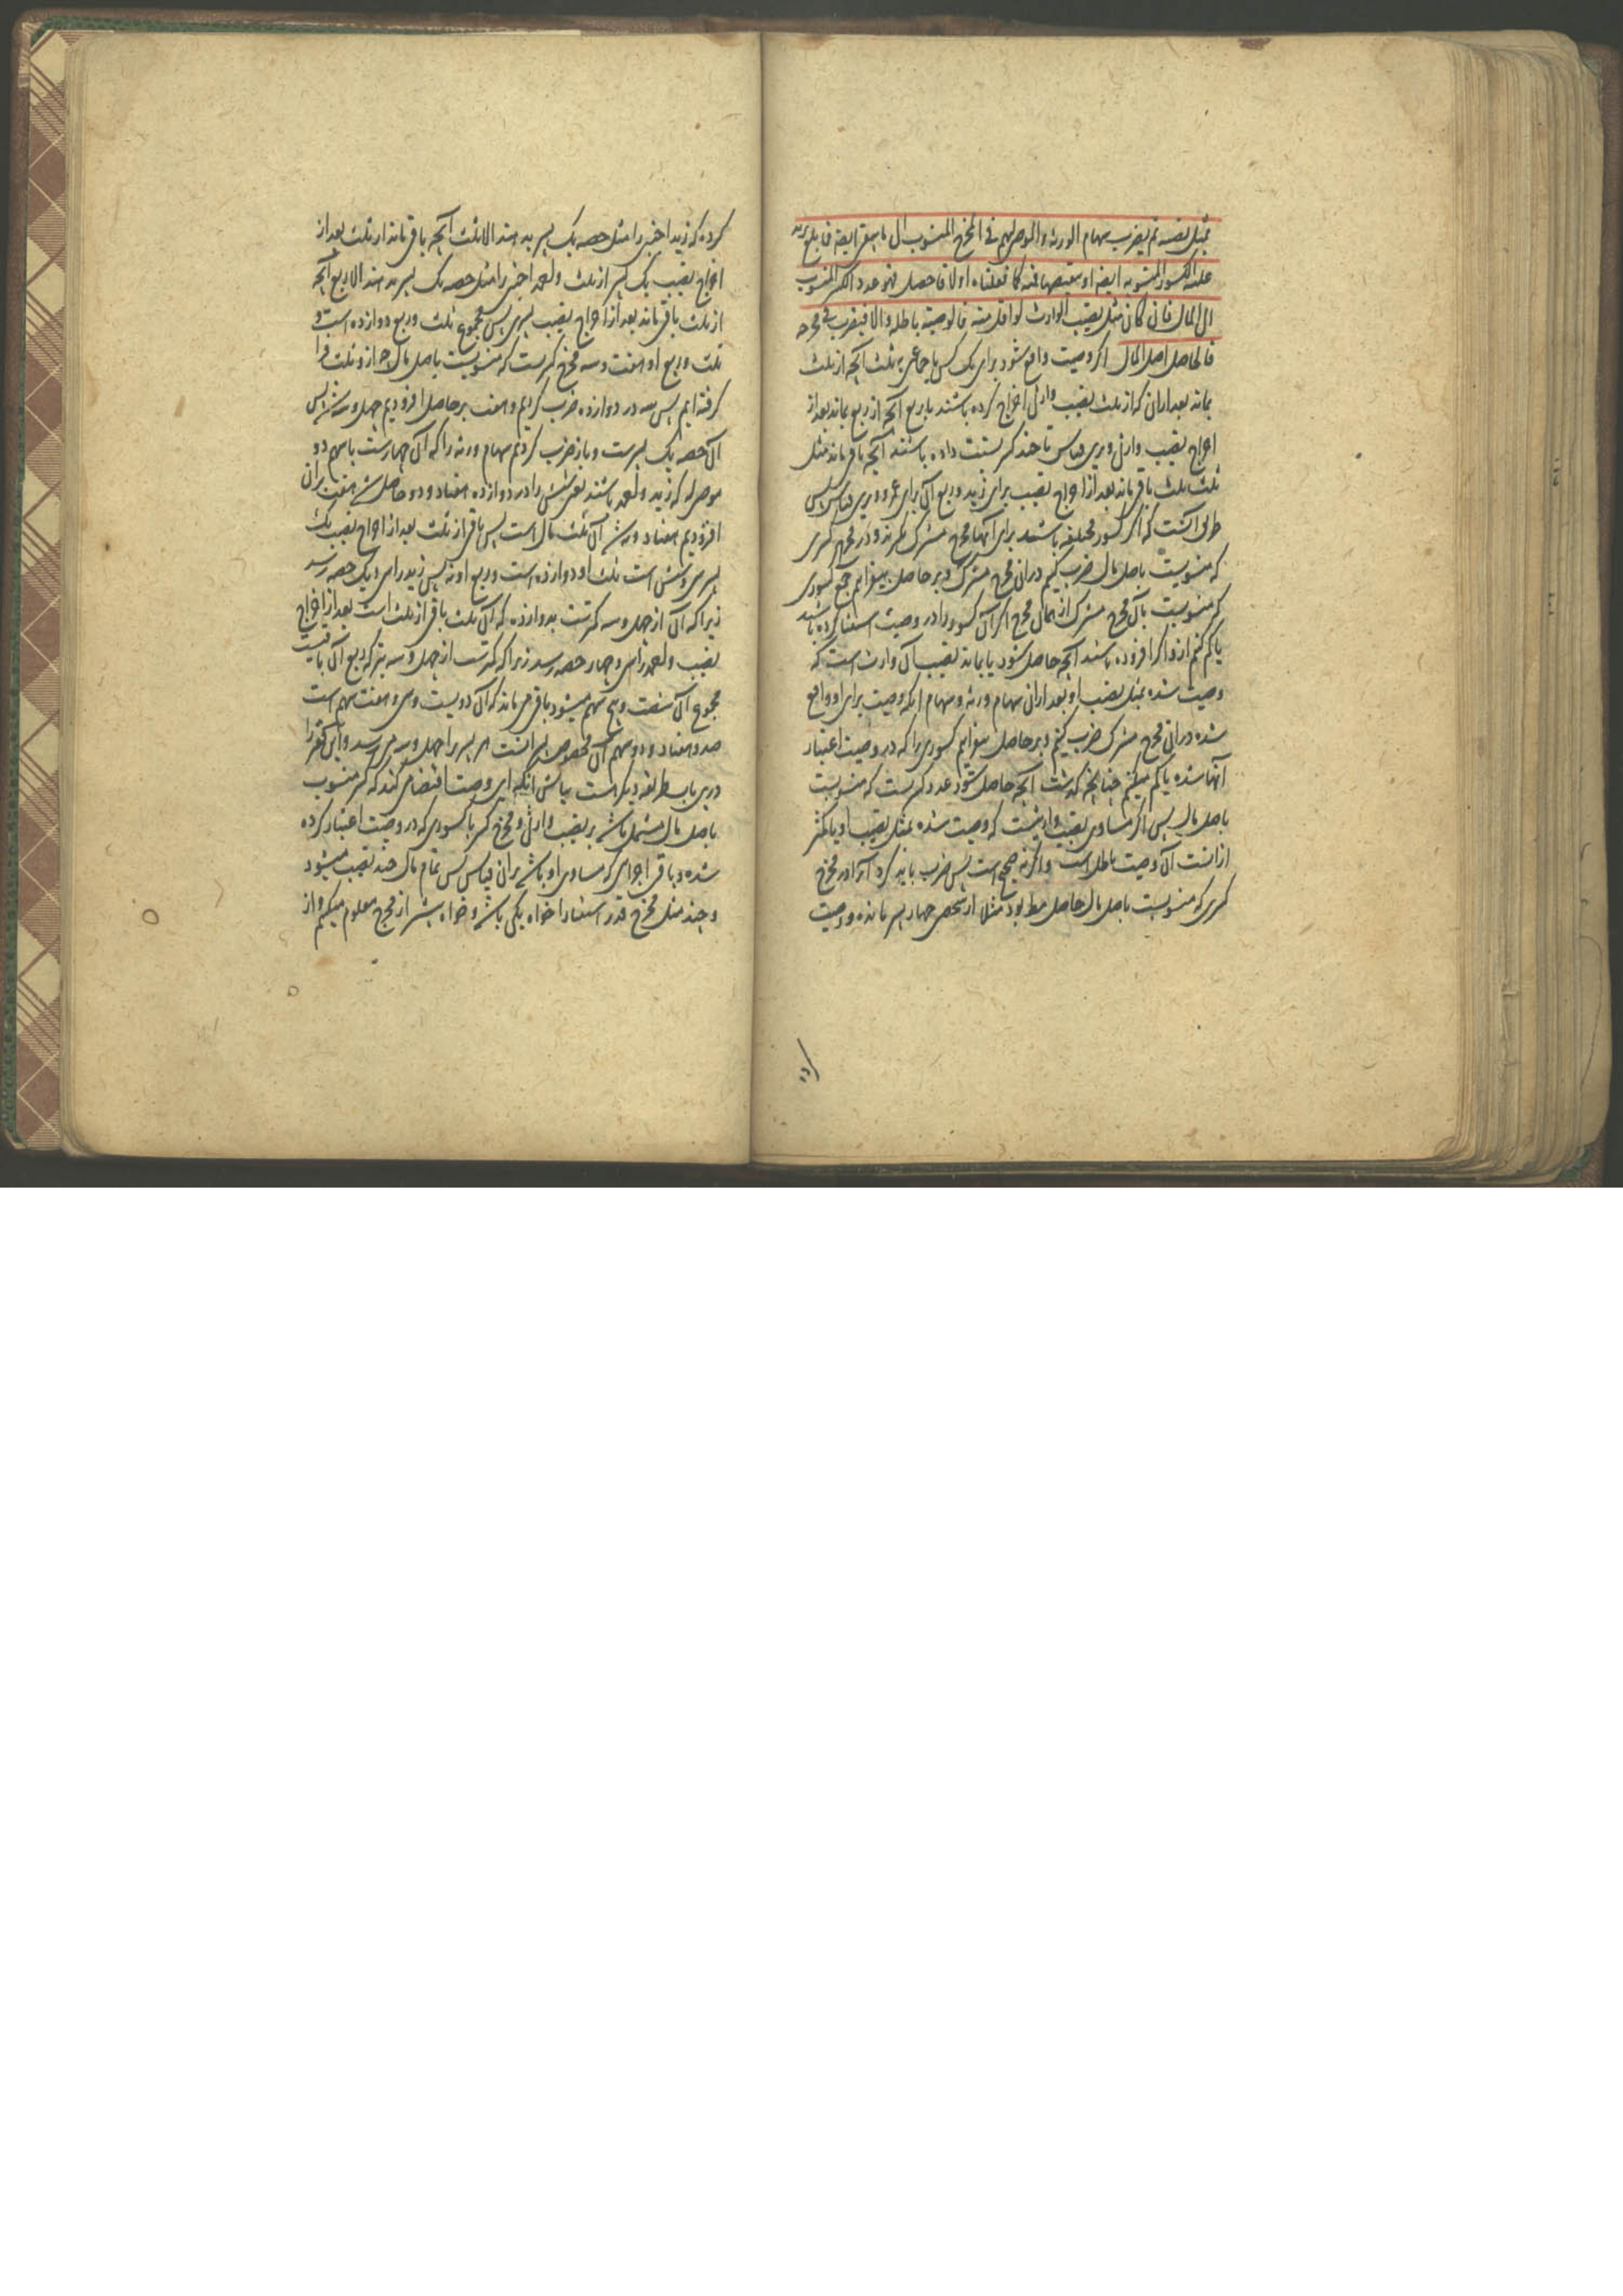 بمثل نصیبه ثم یضرب سهام الورثة والموصی لهم فی المخرج المنسوب الی ما بقی ایضا فما بلغ یزید
علیه الکسور المنسوبه ایضا او ینقصها منه کما فعلناه اولا فما حصل فهو عدد الکسر المنسوب
الی المال فان کان مثل نصیب الوارث او اقل منه فالوصیة باطلة والا فیضرب فی مخرجه
فالحاصل اصل المال اگر وصیت واقع شود برای یک کس یا جماعتی بثلث آنچه از ثلث
بماند بعد ازان که از ثلث نصیب وارثی اخراج کرده باشند یا بربع آنچه از ربع بماند بعد از
اخراج نصیب وارثی و برین قیاس تا چند کسر نسبت داده باشند آنچه باقی ماند مثل
ثلث ثلث باقی ماند بعد از اخراج نصیب برای زید و ربع آن برای عمرو و برین قیاس پس
طریق آنست که اگر کسور مختلفه باشند برای آنها مخرج مشترک گیرند و در مخرج کسری
که منسوبست باصل مال ضرب کنیم دران مخرج مشترک و بر حاصل بیفزائیم جمع کسوری
که منسوبست بآن مخرج مشترک از همان مخرج اگر آن کسور را در وصیت استثنا کرده باشند
یا کم کنیم ازو اگر افزوده باشند آنچه حاصل شود یا بماند نصیب آن وارث است که
وصیت شده بمثل نصیب او بعد ازان سهام ورثه و سهام آنکه وصیت برای او واقع
شده دران مخرج مشترک ضرب کنیم و بر حاصل بیفزائیم کسوری را که در وصیت اعتبار
آنها شده یا کم میکنیم چنانچه گذشت آنچه حاصل شود عدد کسریست که منسوبست
باصل مال پس اگر مساوی نصیب وارثیست که وصیت شده بمثل نصیب او یا کمتر
ازانست آن وصیت باطل است و اگر نه صحیح است پس ضرب باید کرد آنرا در مخرج
کسری که منسوبست باصل مال حاصل مطلوب بود مثلا از شخصی چهار پسر مانده و وصیت
کرده
کرده که زید اجنبی را مثل حصه یک پسر بدهند الا ثلث آنچه باقی ماند از ثلث بعد از
اخراج نصیب یک پسر از ثلث و محمد اجنبی را مثل حصه یک پسر بدهند الا ربع آنچه
از ثلث باقی ماند بعد از اخراج نصیب پسری پس مجموع ثلث و ربع دوازده است و
ثلث و ربع او هفت و سه مخرج کسریست که منسوبست باصل مال چه ازو ثلث فرا
گرفته ایم پس سه در دوازده ضرب کردیم و هفت بر حاصل افزودیم چهل و سه شد پس
آن حصه یک پسرست و باز ضرب کردیم سهام ورثه را که آن چهارست با سهم دو
موصی له که زید و محمد باشند یعنی شش را در دوازده هفتاد و دو حاصل شد هفت بران
افزودیم هفتاد و نه شد آن ثلث مال است پس باقی از ثلث بعد از اخراج نصیب یک
پسر سی و شش است ثلث او دوازده است و ربع او نه پس زید را سی و یک حصه رسد
زیرا که آن از چهل و سه کمترست بدوازده که آن ثلث باقی از ثلث است بعد از اخراج
نصیب و محمد را سی و چهار حصه رسد زیرا که کمترست از چهل و سه بنه که ربع آن باقیست
مجموع آن شصت و پنج سهم میشود باقی می ماند که آن دویست و سی و هفت سهم است
صد و هفتاد و دو سهم آن مخصوص پسرانست هر پسر را چهل و سه می رسد و این فقیر را
درین باب طریقه دیگر است بیانش آنکه این وصیت اقتضا می کند که کسر منسوب
باصل مال مشتمل باشد بر نصیب وارثی و مخرج کسر یا کسوری که در وصیت اعتبار کرده
شده و باقی اجزای که مساوی او باشد بران قیاس پس تمام مال چند نصیب میشود
و چند مثل مخرج قدر استثنا را خواه یکی باشد و خواه بیشتر از مخرج معلوم میکنیم و از